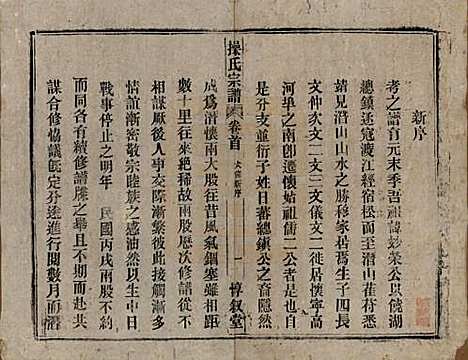 新序
考之譜首元末季吾祖諱妙榮公以饒湖
總鎮逐寇渡江經宿松而至潛山萑苻悉
靖見潛山山水之勝移家居焉生子四長
文仲次文二文三文儀文二徙居懷寧高
河埠之南卽潛懷始祖儒二公者也於
是分支並衍子姓日蕃總鎮公之裔隱然
成爲潛懷兩大股往昔風氣錮塞雖相隔
數十里往來絕稀故兩股歷次修譜未克
相謀厥後人事交際漸繁彼此接觸漸多
情誼漸密敬宗睦族之感油然以生中日
戰事停止之明年民國丙戌歲兩股
而同各有續修譜牒之舉且不期而赴共
謀合修協議旣定分途進行閱數月而潛
操氏宗譜
卷首
大宗新序
一
惇敘堂